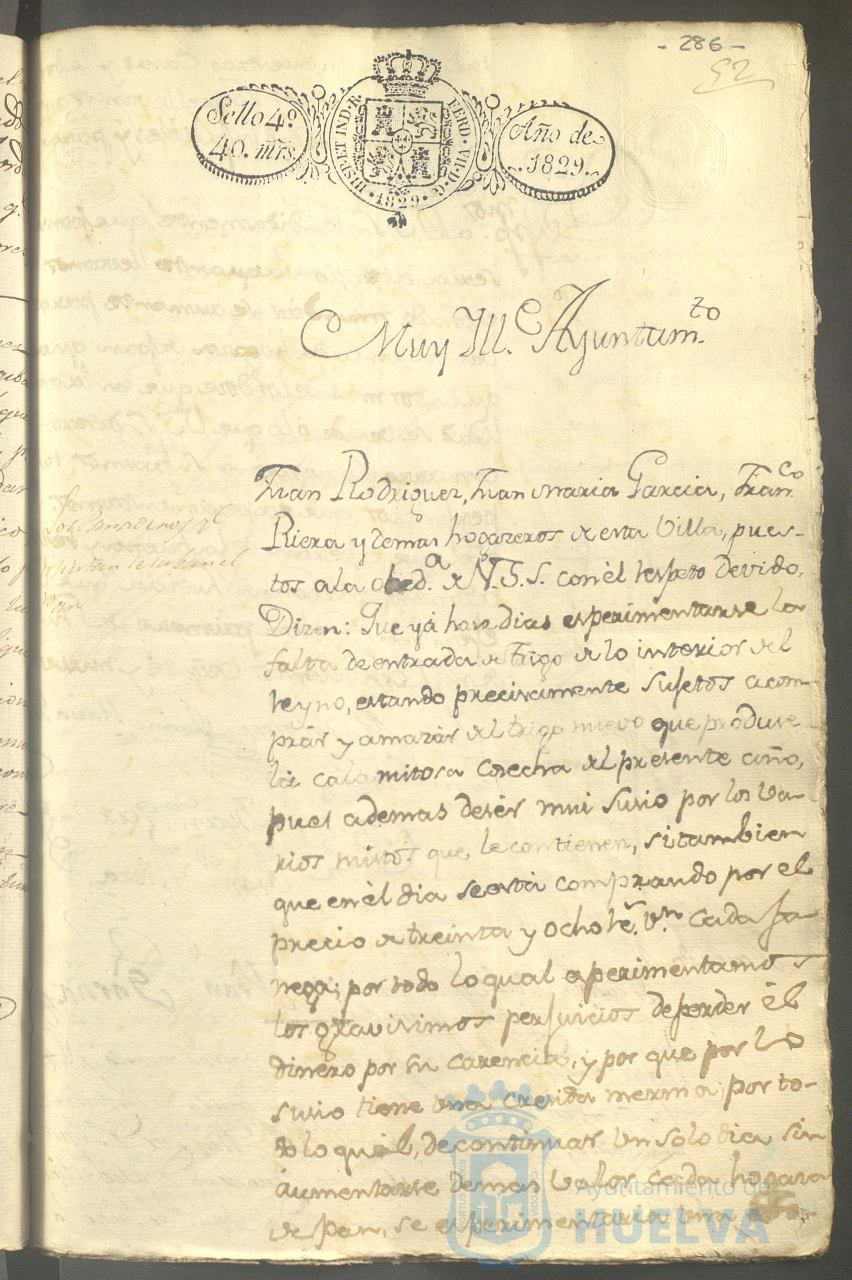 - 286 -
52
Sello 4º
40. mrs.
HISP. ET IND. R. FERD. VII. D. G. 1829.
Año de
1829.
Muy Ille. Ayuntamto.
Juan Rodriguez, Juan Maria Garcia, Franco.
Riera y demas hogazeros de esta Villa, pues-
tos a la obeda. de V.S.S. con él respeto devido,
Dizen: Que yá haze dias esperimentarse la
falta de entrada de trigo de lo interior del
reyno, estando precisamente sujetos a com-
prár y amazár del trigo nuevo que produse
la calamitosa cosecha del presente año,
pues ademas de sér mui susio por los va-
rios mistos que le contienen, si tambien
que en él dia se está comprando por el
precio de treinta y ocho rs. vn. cada fa-
nega; por todo lo qual esperimentamos
los gravisimos perjuicios de perder él
dinero por su carencia, y por que por lo
susio tiene una cresida merma; por to-
do lo quál, de continuar un solo dia sin
aumentarse de mas valor cada hogaza
de pan, se esperimentaria una
Ayuntamiento de
HUELVA